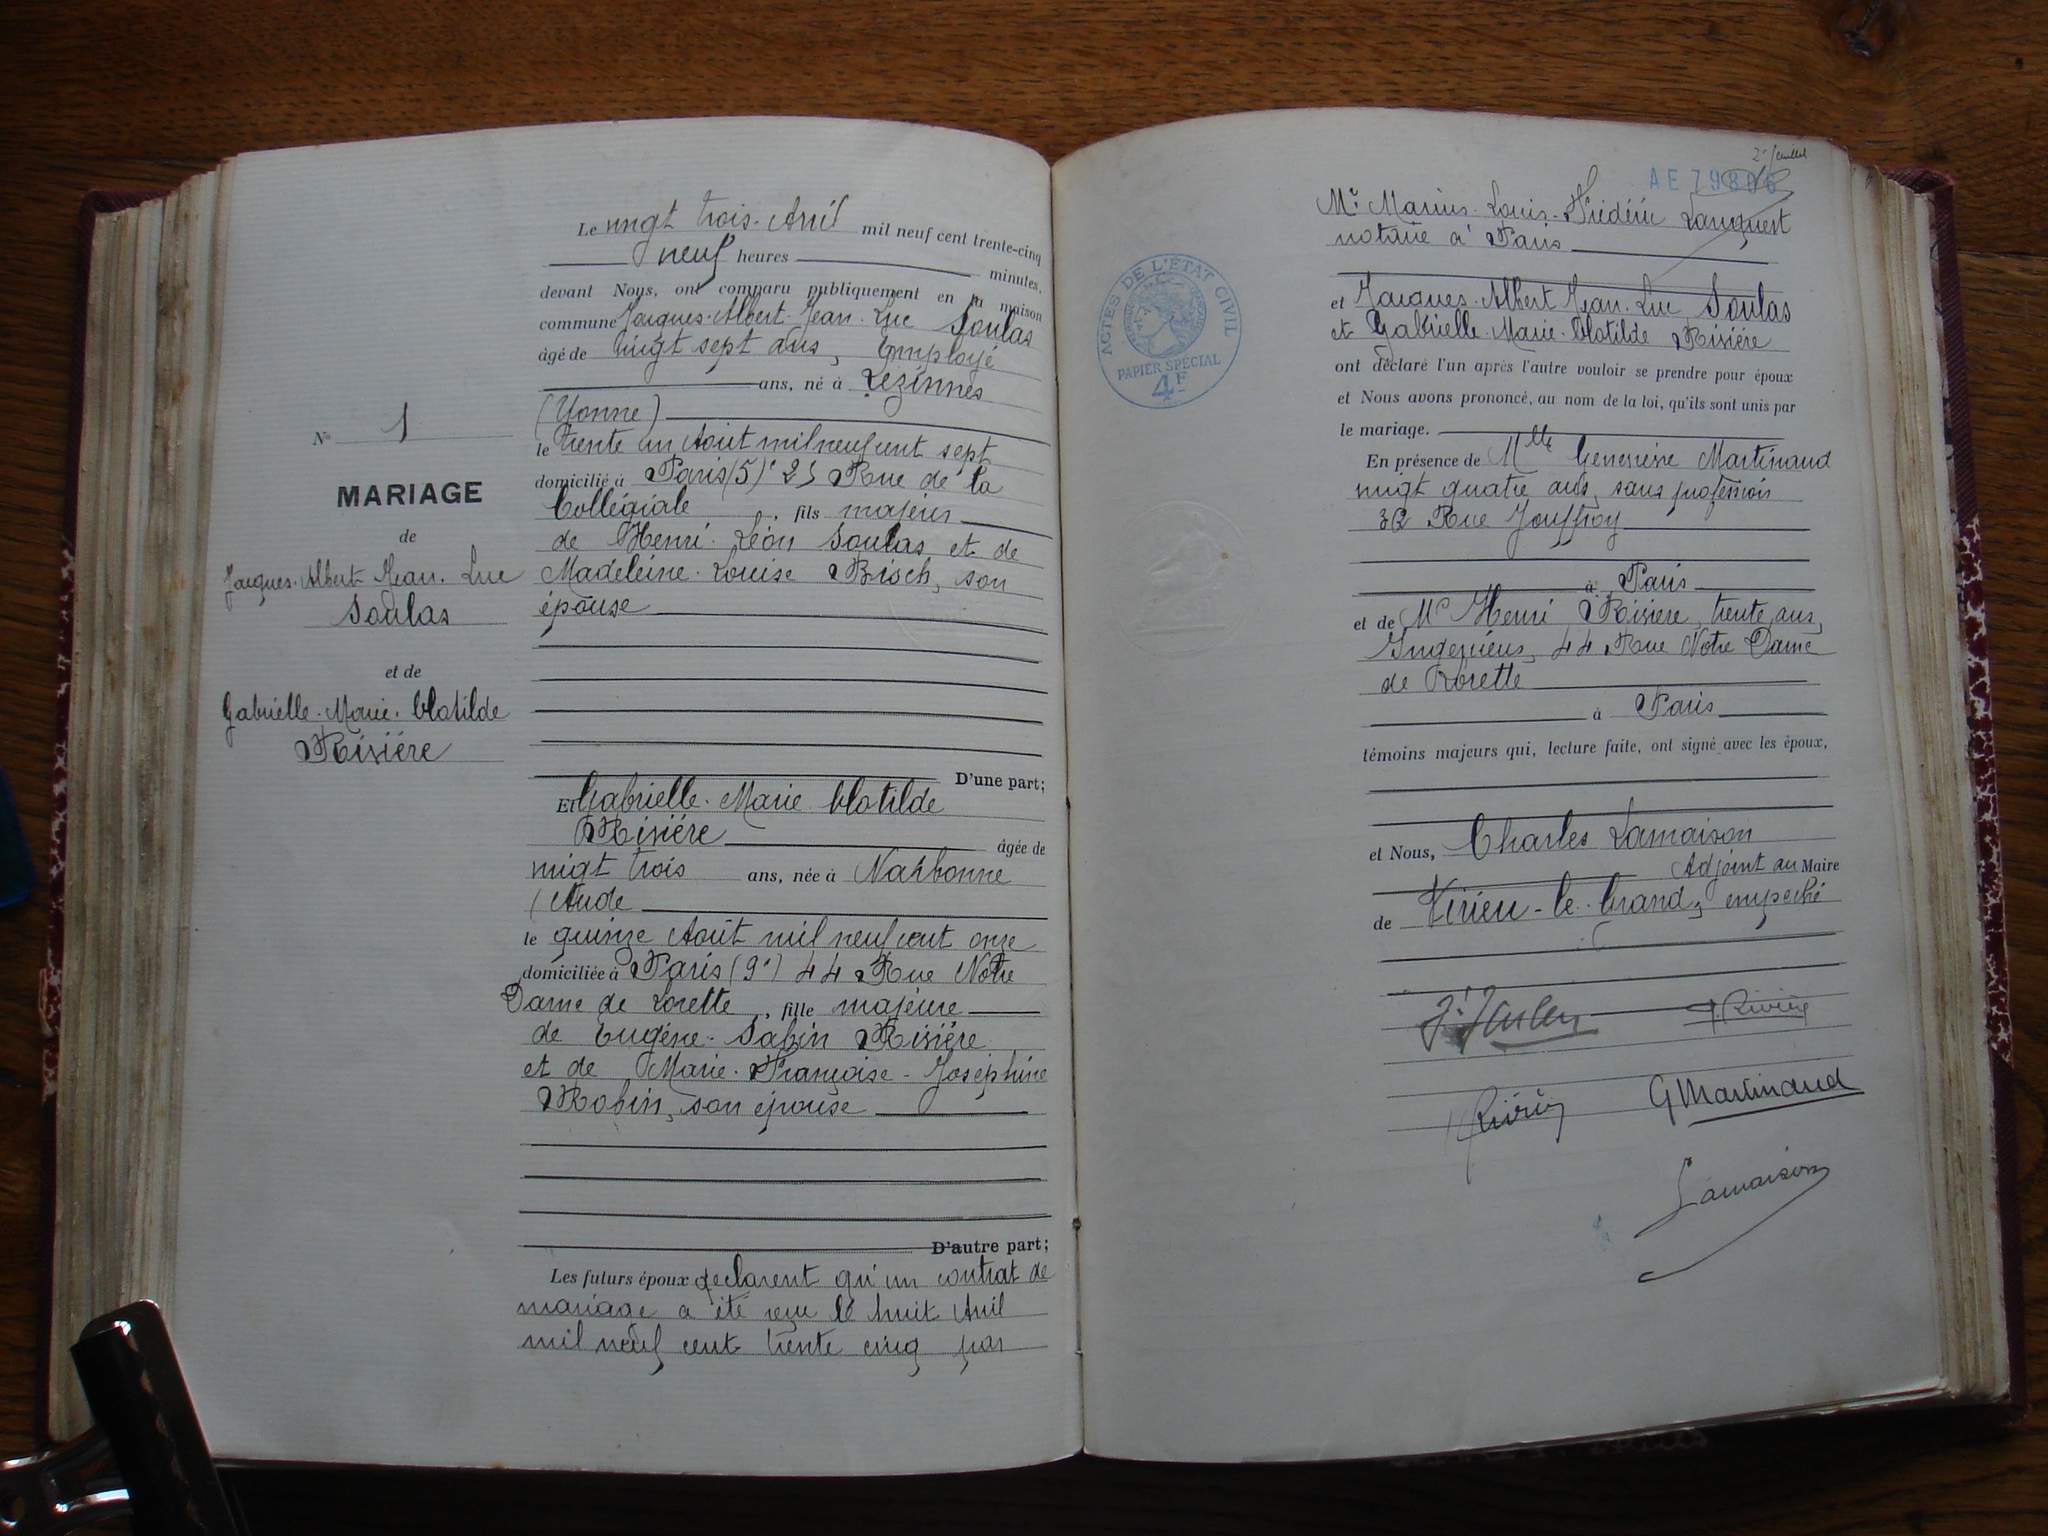 N° 1
MARIAGE
de
Jacques-Albert-Jean-Luc
Soulas
et de
Gabrielle-Marie-Clotilde
Rivière
Le vingt trois Avril mil neuf cent trente-cinq
neuf heures minutes,
devant Nous, ont comparu publiquement en la maison
commune Jacques-Albert-Jean-Luc Soulas
âgé de vingt sept ans, Employé
ans, né à Lézinnes
(Yonne)
le trente un Août mil neuf cent sept
domicilié à Paris (5)e 25 Rue de la
Collégiale, fils majeur
de Henri-Léon Soulas et de
Madeleine-Louise Bisch, son
épouse
D'une part;
Et Gabrielle-Marie Clotilde
Rivière âgée de
vingt trois ans, née à Narbonne
(Aude
le quinze Août mil neuf cent onze
domiciliée à Paris (9e) 44 Rue Notre
Dame de Lorette, fille majeure
de Eugène-Sabin Rivière
et de Marie-Françoise-Joséphine
Robin, son épouse
D'autre part;
Les futurs époux déclarent qu'un contrat de
mariage a été reçu le huit Avril
mil neuf cent trente cinq par
2e feuillet
AE 79806
Me Marius-Louis-Frédéric Lanquest
notaire à Paris
ACTES DE L'ÉTAT CIVIL
PAPIER SPÉCIAL
4F
et Jacques-Albert Jean-Luc Soulas
et Gabrielle-Marie-Clotilde Rivière
ont déclaré l'un après l'autre vouloir se prendre pour époux
et Nous avons prononcé, au nom de la loi, qu'ils sont unis par
le mariage.
En présence de Mlle Geneviève Martinaud
vingt quatre ans, sans profession
32 Rue Jouffroy
à Paris
et de Mr Henri Rivière, trente ans,
Ingénieur, 44 Rue Notre Dame
de Lorette
à Paris
témoins majeurs qui, lecture faite, ont signé avec les époux,
et Nous, Charles Lamaison
Adjoint au Maire
de Virieu-le-Grand, empêché
G. Rivière
Rivière
G Martinaud
Lamaison